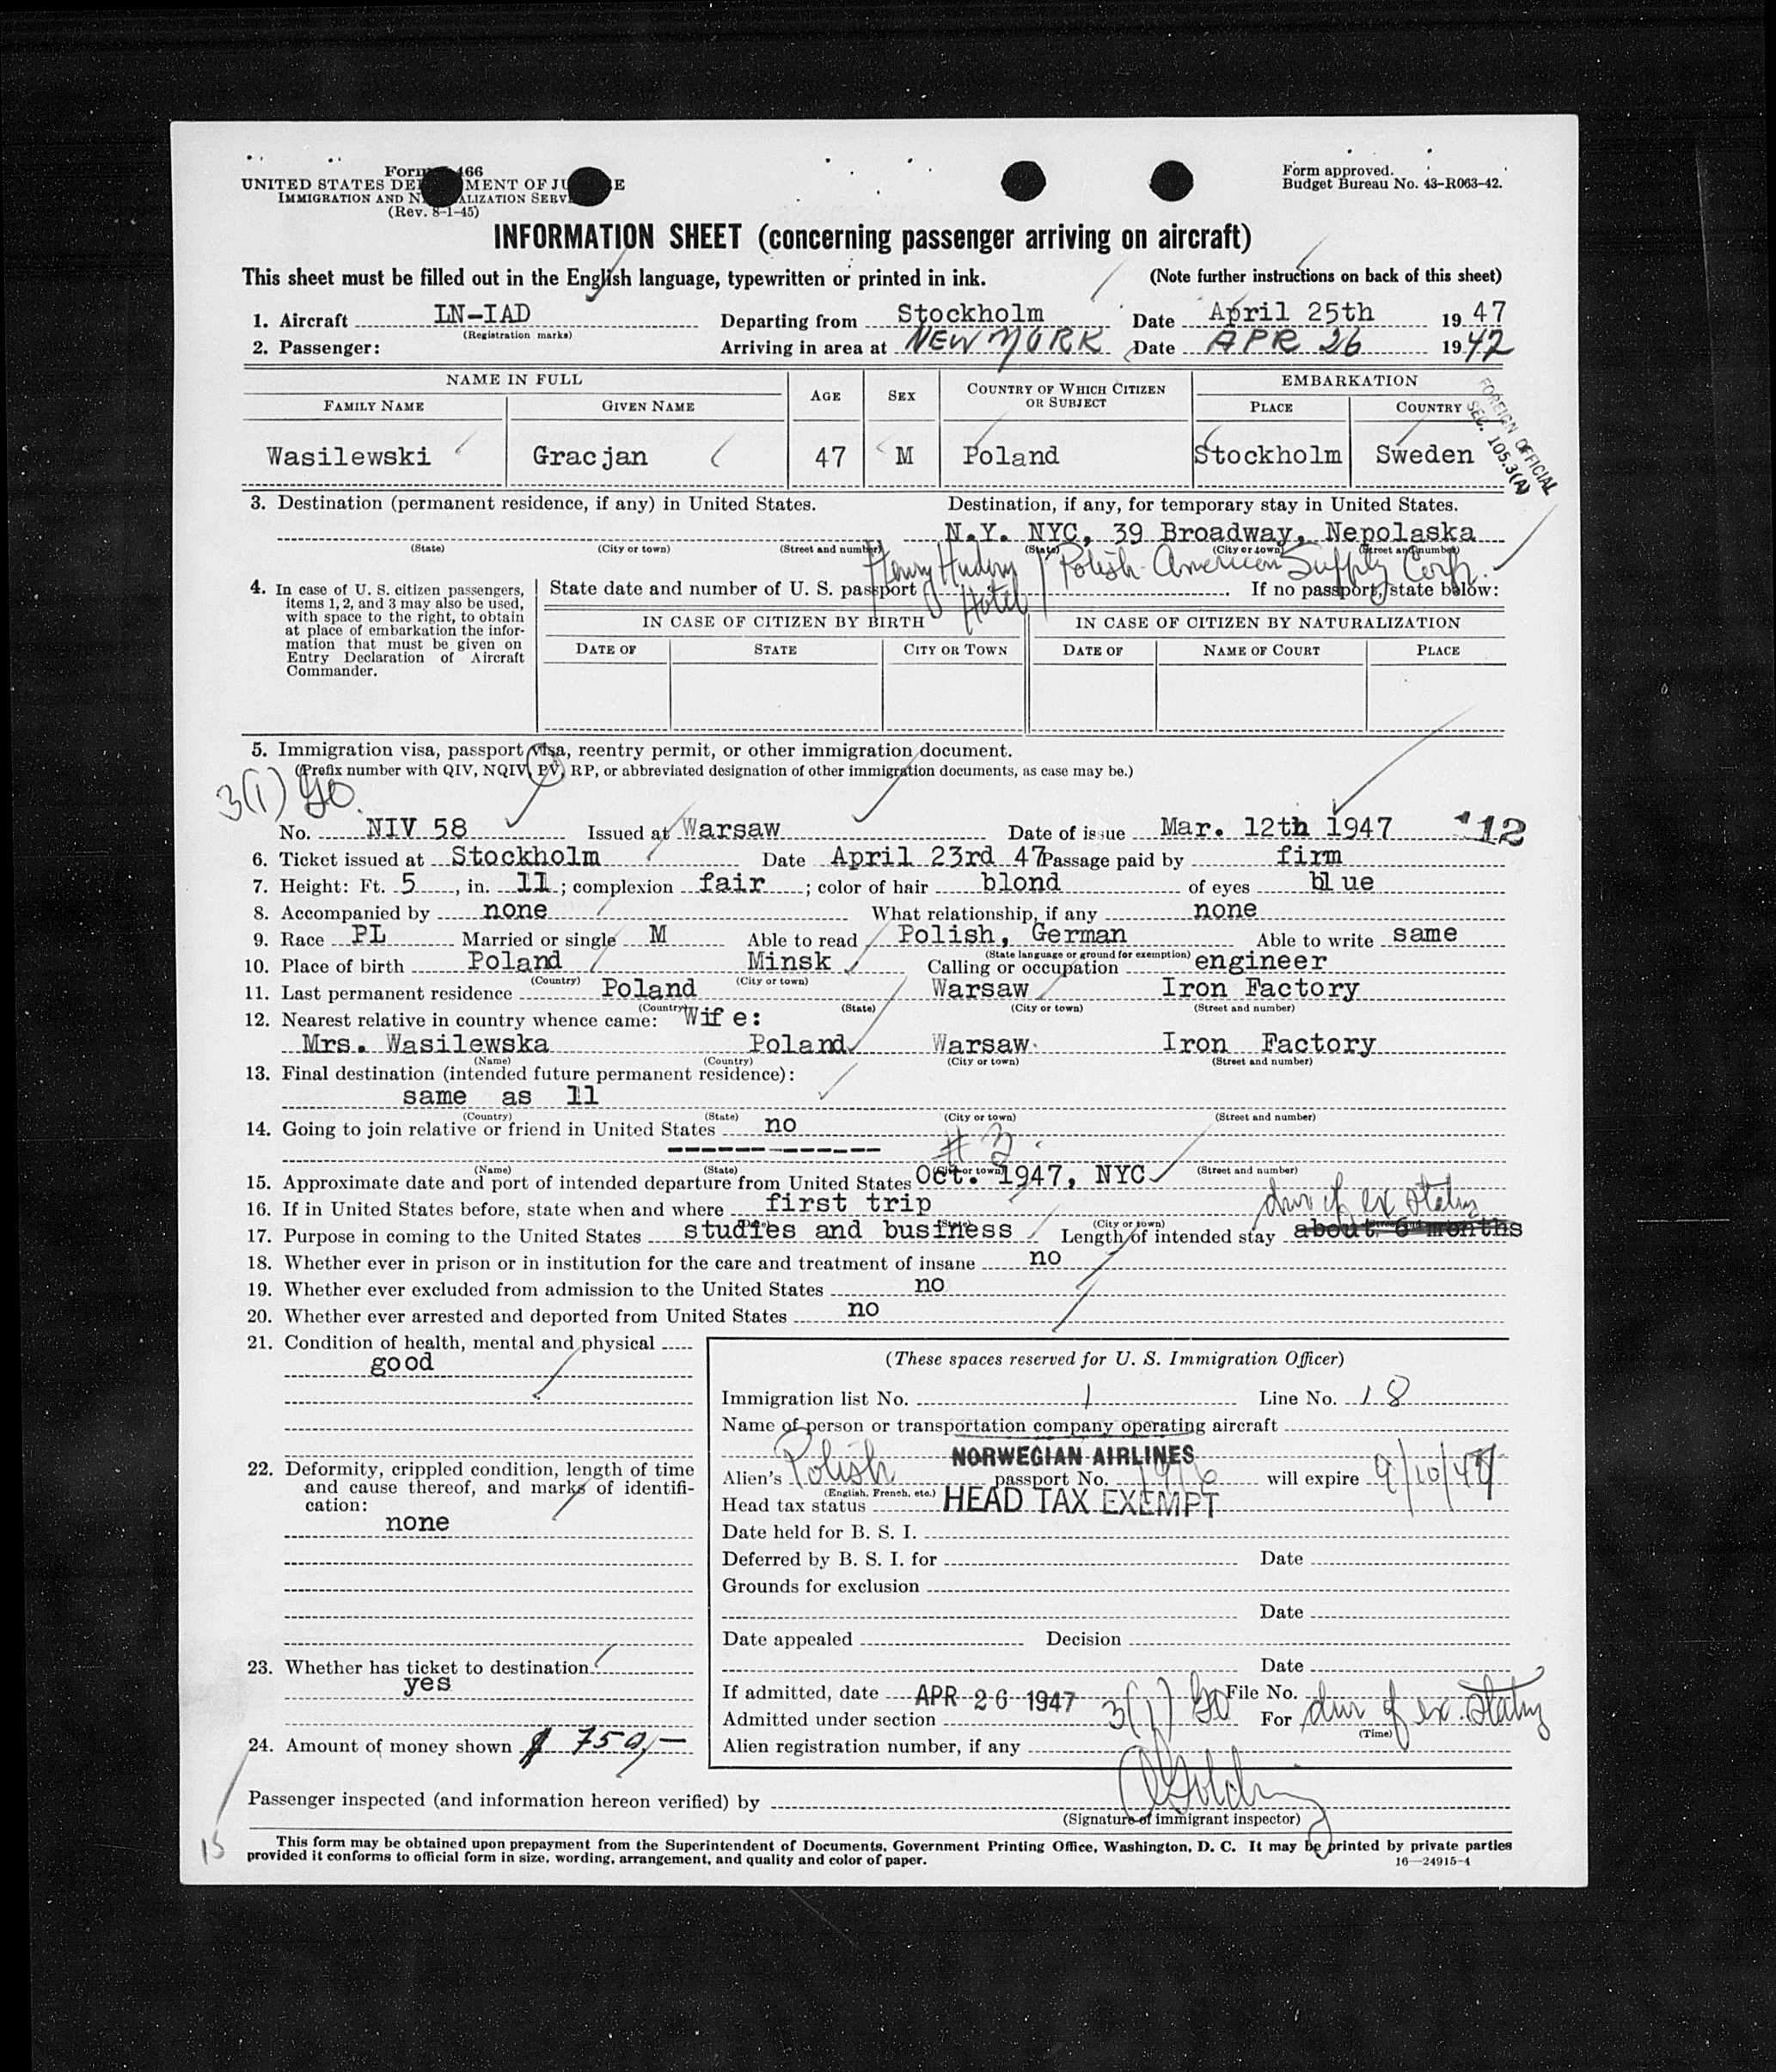 Form 466
UNITED STATES DE MENT OF JU E
IMMIGRATION AND N ALIZATION SERV
(Rev. 8-1-45)
Form approved.
Budget Bureau No. 43-R063-42.
INFORMATION SHEET (concerning passenger arriving on aircraft)
This sheet must be filled out in the English language, typewritten or printed in ink. (Note further instructions on back of this sheet)
1. Aircraft LN-IAD Departing from Stockholm Date April 25th 19 47
(Registration marks)
2. Passenger: Arriving in area at NEW YORK Date APR 26 1947
NAME IN FULL AGE SEX COUNTRY OF WHICH CITIZEN OR SUBJECT EMBARKATION
FAMILY NAME GIVEN NAME PLACE COUNTRY
FOREIGN OFFICIAL
SEC. 105.3(A)
Wasilewski Gracjan 47 M Poland Stockholm Sweden
3. Destination (permanent residence, if any) in United States. Destination, if any, for temporary stay in United States.
N.Y. NYC, 39 Broadway, Nepolaska
(State) (City or town) (Street and number) (State) (City or town) (Street and number)
Henry Hudson Hotel Polish American Supply Corp.
4. In case of U. S. citizen passengers, items 1, 2, and 3 may also be used, with space to the right, to obtain at place of embarkation the information that must be given on Entry Declaration of Aircraft Commander.
State date and number of U. S. passport If no passport, state below:
IN CASE OF CITIZEN BY BIRTH IN CASE OF CITIZEN BY NATURALIZATION
DATE OF STATE CITY OR TOWN DATE OF NAME OF COURT PLACE
5. Immigration visa, passport visa, reentry permit, or other immigration document.
(Prefix number with QIV, NQIV, PV, RP, or abbreviated designation of other immigration documents, as case may be.)
3(1) GO
No. NIV 58 Issued at Warsaw Date of issue Mar. 12th 1947 12
6. Ticket issued at Stockholm Date April 23rd 47 Passage paid by firm
7. Height: Ft. 5, in. 11; complexion fair; color of hair blond of eyes blue
8. Accompanied by none What relationship, if any none
9. Race PL Married or single M Able to read Polish, German Able to write same
(State language or ground for exemption)
10. Place of birth Poland Minsk Calling or occupation engineer
(Country) (City or town)
11. Last permanent residence Poland Warsaw Iron Factory
(Country) (State) (City or town) (Street and number)
12. Nearest relative in country whence came: Wife:
Mrs. Wasilewska Poland Warsaw Iron Factory
(Name) (Country) (City or town) (Street and number)
13. Final destination (intended future permanent residence):
same as 11
(Country) (State) (City or town) (Street and number)
14. Going to join relative or friend in United States no
# 3
(Name) (State) (City or town) (Street and number)
15. Approximate date and port of intended departure from United States Oct. 1947, NYC
16. If in United States before, state when and where first trip
dur of ex status
(Date) (State) (City or town) (Street and number)
17. Purpose in coming to the United States studies and business Length of intended stay about 6 months
18. Whether ever in prison or in institution for the care and treatment of insane no
19. Whether ever excluded from admission to the United States no
20. Whether ever arrested and deported from United States no
21. Condition of health, mental and physical
good
22. Deformity, crippled condition, length of time and cause thereof, and marks of identification:
none
23. Whether has ticket to destination
yes
24. Amount of money shown $ 750,—
(These spaces reserved for U. S. Immigration Officer)
Immigration list No. 1 Line No. 18
Name of person or transportation company operating aircraft
NORWEGIAN AIRLINES
Alien's Polish passport No. will expire 9/10/47
(English, French, etc.)
Head tax status HEAD TAX EXEMPT
Date held for B. S. I.
Deferred by B. S. I. for Date
Grounds for exclusion
Date
Date appealed Decision
Date
If admitted, date APR 26 1947 File No.
Admitted under section 3(1) GO For dur of ex. status
(Time)
Alien registration number, if any
Passenger inspected (and information hereon verified) by
(Signature of immigrant inspector)
15
This form may be obtained upon prepayment from the Superintendent of Documents, Government Printing Office, Washington, D. C. It may be printed by private parties
provided it conforms to official form in size, wording, arrangement, and quality and color of paper. 16—24915-4